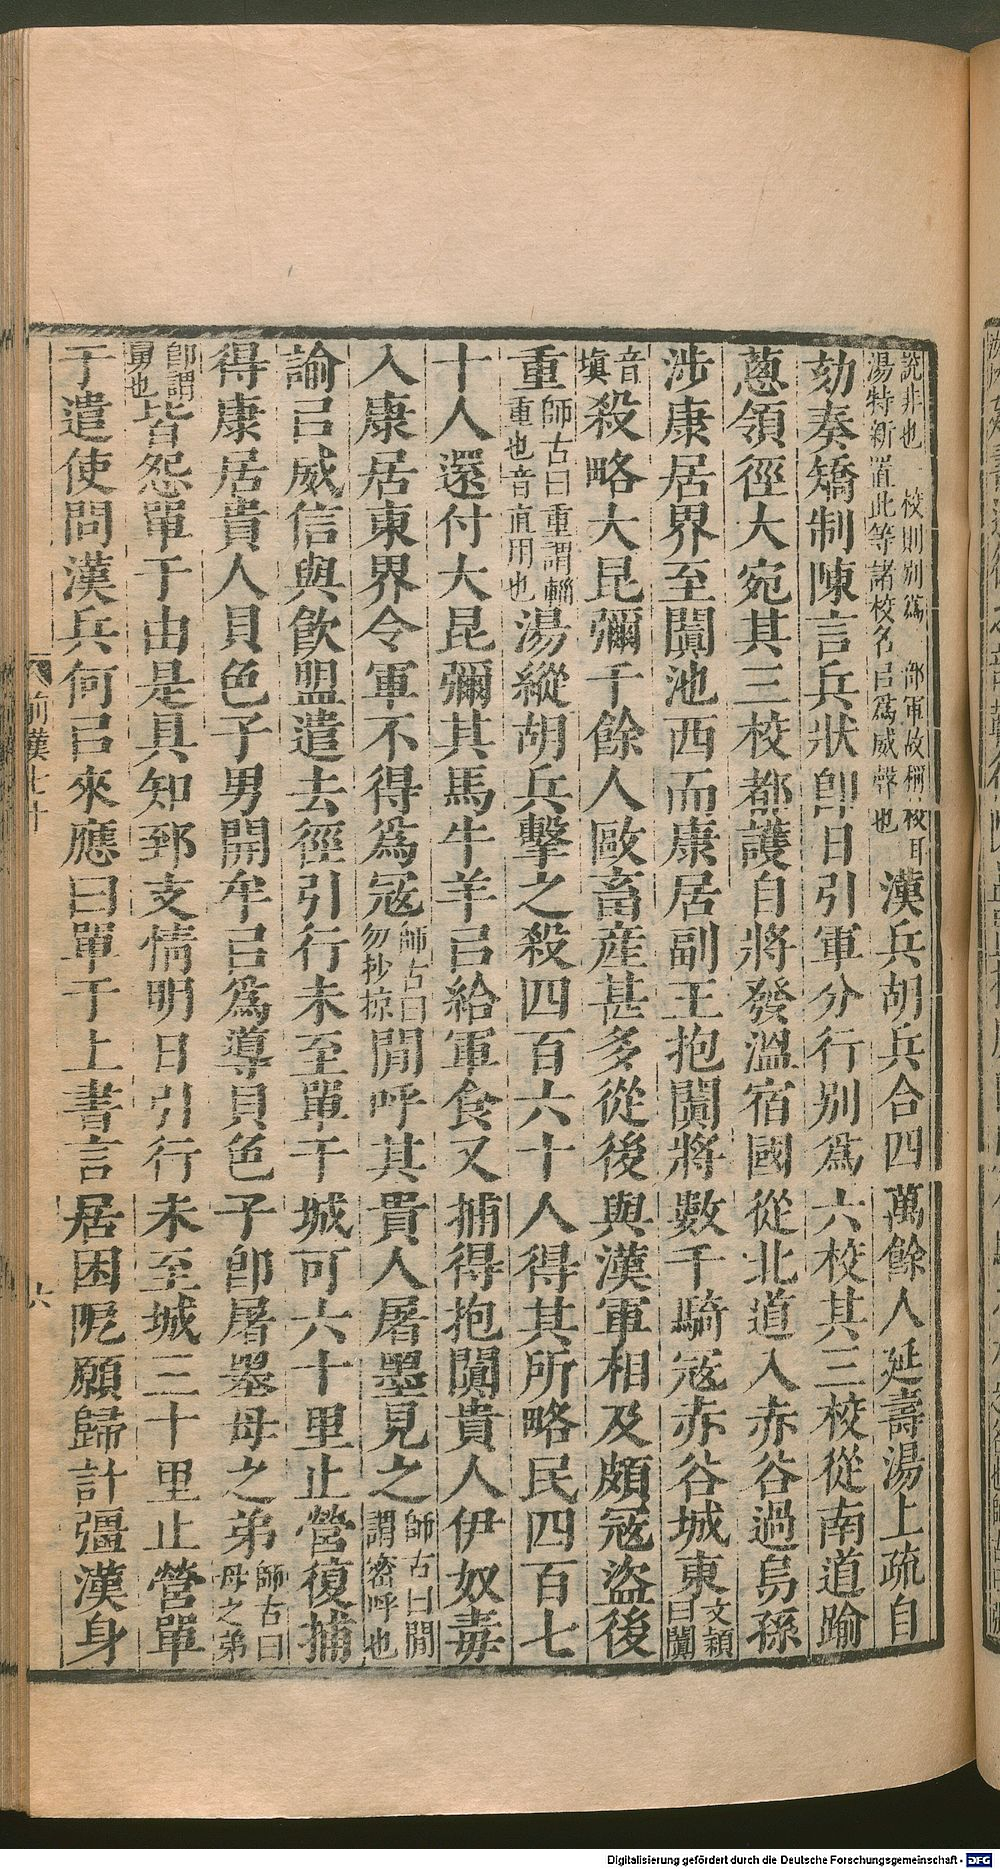 說非也一校則別爲一部軍故稱校耳湯特新置此等諸校名㠯爲威聲也漢兵胡兵合四萬餘人延壽湯上疏自
劾奏矯制陳言兵狀卽日引軍分行別爲六校其三校從南道踰
蔥領徑大宛其三校都護自將發溫宿國從北道入赤谷過烏孫
涉康居界至闐池西而康居副王抱闐將數千騎寇赤谷城東文穎曰闐
音塡殺略大昆彌千餘人歐畜產甚多從後與漢軍相及頗寇盜後
重師古曰重謂輜重也音直用也湯縱胡兵擊之殺四百六十人得其所略民四百七
十人還付大昆彌其馬牛羊㠯給軍食又捕得抱闐貴人伊奴毒
入康居東界令軍不得爲寇師古曰勿抄掠閒呼其貴人屠墨見之師古曰閒謂密呼也
諭㠯威信與飮盟遣去徑引行未至單于城可六十里止營復捕
得康居貴人貝色子男開牟㠯爲導貝色子卽屠墨母之弟師古曰母之弟
卽謂舅也皆怨單于由是具知郅支情明日引行未至城三十里止營單
于遣使問漢兵何㠯來應曰單于上書言居困阸願歸計彊漢身
前漢七十
六
Digitalisierung gefördert durch die Deutsche Forschungsgemeinschaft - DFG